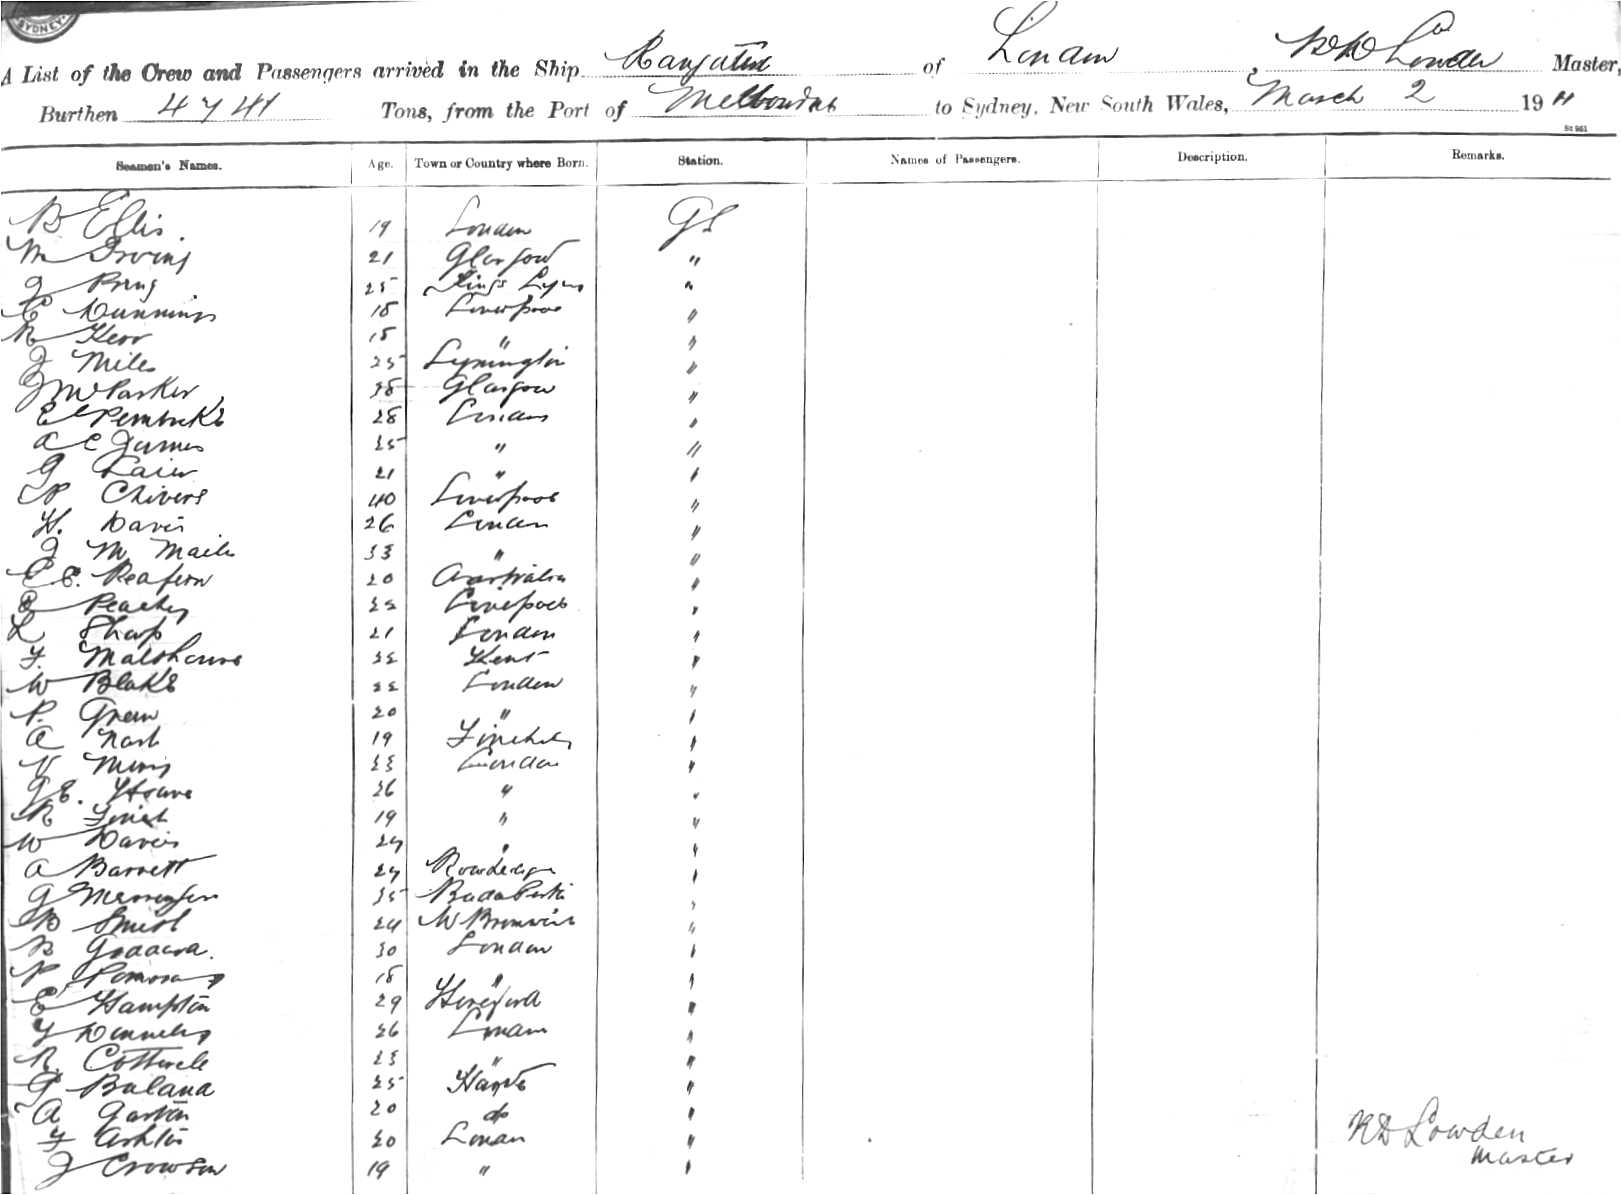 SYDNEY
A List of the Crew and Passengers arrived in the Ship Rangatira of London, R D Lowden Master,
Burthen 4741 Tons, from the Port of Melbourne to Sydney, New South Wales, March 2 19
St 961
Seamen's Names. Age. Town or Country where Born. Station. Names of Passengers. Description. Remarks.
B Ellis 19 London GS
M Irving 21 Glasgow "
J Ring 25 Kings Lynn "
C Cunnings 18 Liverpool "
R Kerr 18 " "
J Miles 25 Lymington "
J McParker 38 Glasgow "
E Pembroke 28 London "
A E James 25 " "
G 21 " "
P Chivers 40 Liverpool "
H. Davis 26 London "
J M Maile 33 " "
E E. Reafern 20 Australia "
E Peachey 22 Liverpool "
L Sharp 21 London "
F. Malthouse 22 Kent "
W Blake 22 London "
P. Green 20 " "
A Nash 19 Finchley "
V 23 London "
G E. Hoare 26 " "
R Finch 19 " "
W Davies 24 " "
A Barrett 24 "
G 35 Buda Pesth "
B Smith 24 W Bromwich "
B Goddard. 30 London "
P 18 " "
E Hampton 29 Hereford "
Y 26 London "
R. Cottrell 23 " "
G Buland 25 Hants "
A Garton 20 do "
F Ashton 20 London "
J Crowson 19 " "
R D Lowden
Master